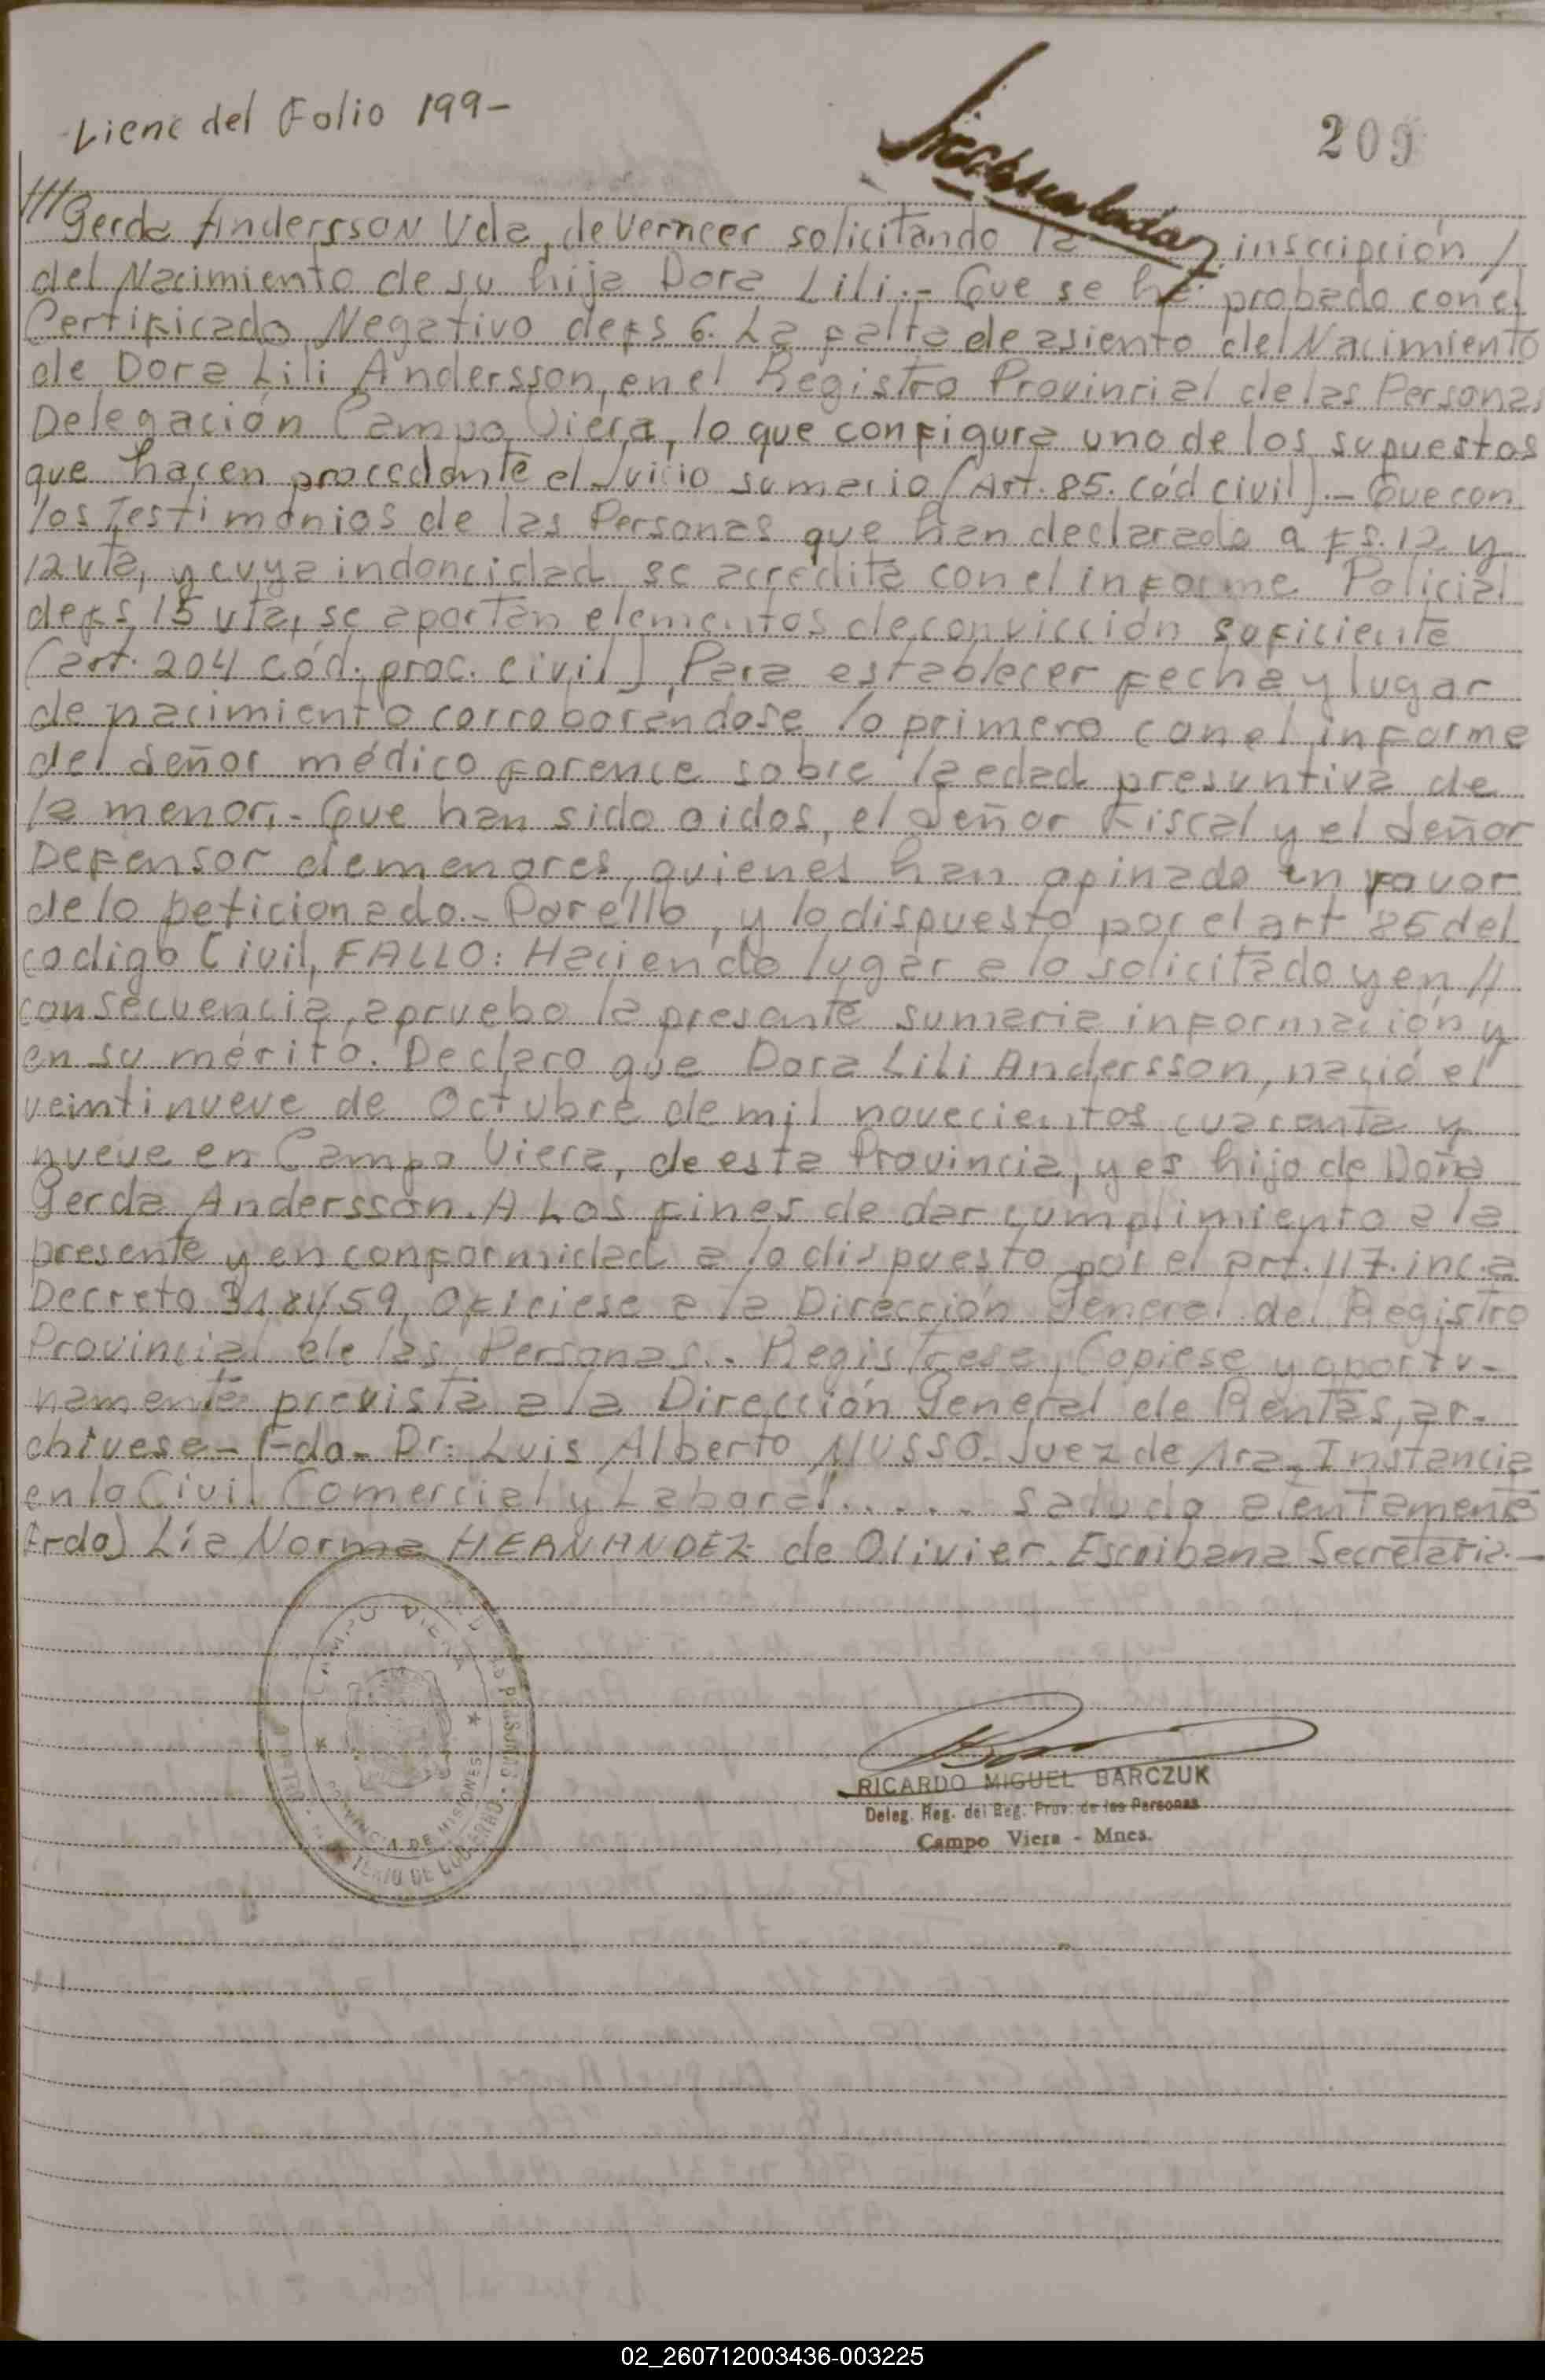 Viene del Folio 199-
209
Inmatriculada
///Gerda Andersson Vda, de Verneer solicitando la inscripción /
del Nacimiento de su hija Dora Lili.- Que se ha probado con el
Certificado Negativo de fs 6. La falta de asiento del Nacimiento
de Dora Lili Andersson, en el Registro Provincial de las Personas
Delegación Campo Viera, lo que configura uno de los supuestos
que hacen procedante el Juicio sumario (Art. 85. cód civil).- Que con
los Testimonios de las Personas que han declarado a fs. 12 y
12 vta, y cuya indoneidad se acredita con el informe Policial
de fs 15 vta, se aportan elementos de convicción suficiente
(art. 204 cód. proc. civil) Para establecer fecha y lugar
de nacimiento corroborándose lo primero con el informe
del señor médico forence sobre la edad presuntiva de
la menor,- Que han sido oidos, el Señor Fiscal y el Señor
Defensor de menores, quienes han opinado en favor
de lo peticionado.- Por ello, y lo dispuesto por el art 85 del
codigo Civil, FALLO: Haciendo lugar a lo solicitado y en //
consecuencia, apruebo la presente sumaria información y
en su mérito. Declaro que Dora Lili Andersson, nació el
veintinueve de Octubre de mil novecientos cuarenta y
nueve en Campo Viera, de esta Provincia, y es hija de Doña
Gerda Andersson. A Los fines de dar cumplimiento a la
presente y en conformidad a lo dispuesto por el art. 117. inc. a
Decreto /59, Oficiese a la Dirección General del Registro
Provincial de las Personas.. Registrese, Copiese y oportu-
namente prevista a la Dirección General de Rentas, ar-
chivese- Fdo- Dr: Luis Alberto MUSSO- Juez de 1ra. Instancia
en lo Civil Comercial y Laboral..... Saludo atentamente
Lía Norma HERNANDEZ de Olivier. Escribana Secretaria.-
CAMPO VIERA
PROVINCIA DE MISIONES
MINISTERIO DE GOBIERNO
RICARDO MIGUEL BARCZUK
Deleg. Reg. del Reg. Prov. de las Personas
Campo Viera - Mnes.
02_260712003436-003225